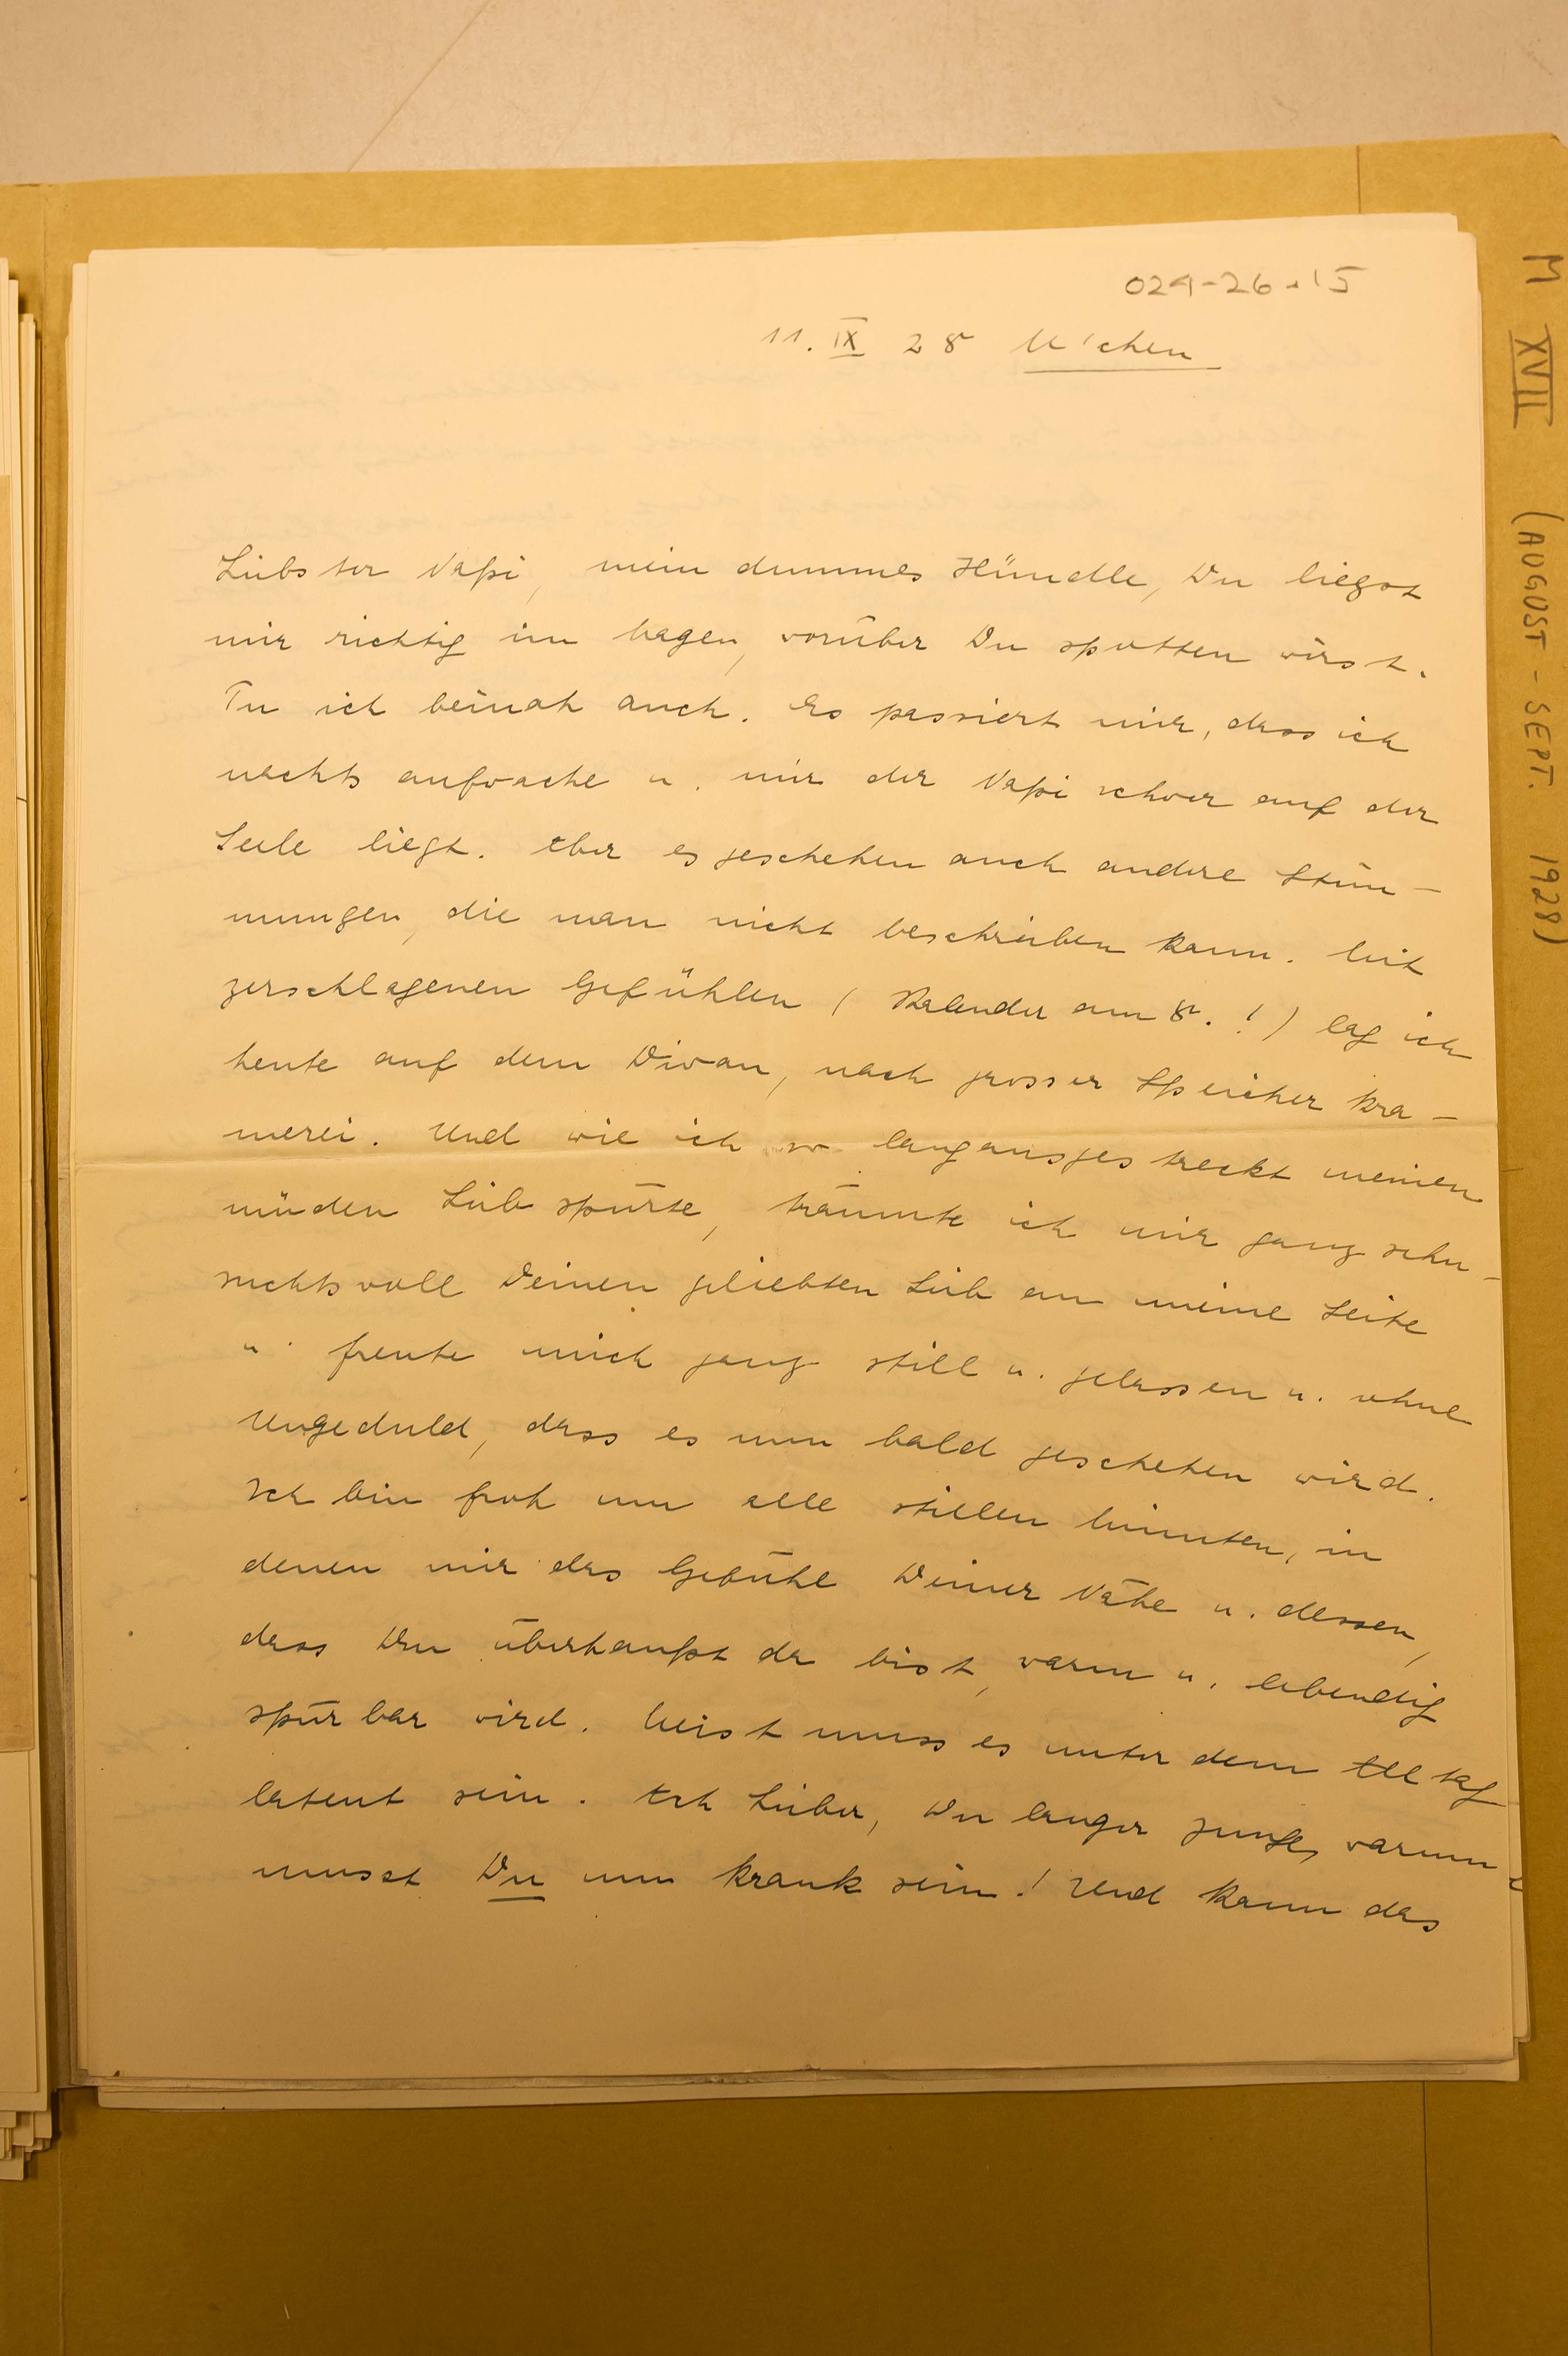 024-26-15
11. IX 28 M'chen
Liebster Napi, mein dummes Hündle, Du liegst
mir richtig im Magen, worüber Du spotten wirst.
Tu ich beinah auch. Es passiert mir, dass ich
nachts aufwache u. mir der Napi schwer auf der
Seele liegt. Aber es geschehen auch andere Stim-
mungen, die man nicht beschreiben kann. Mit
zerschlagenen Gefühlen (Kalender am 8.!) lag ich
heute auf dem Divan, nach grosser Speicherkra-
merei. Und wie ich so langausgestreckt meinen
müden Leib spürte, träumte ich mir ganz sehn-
suchtsvoll Deinen geliebten Leib an meine Seite
u. freute mich ganz still u. gelassen u. ohne
Ungeduld, dass es nun bald geschehen wird.
Ich bin froh um alle stillen Minuten, in
denen mir das Gefühl Deiner Nähe u. dessen,
dass Du überhaupt da bist, warm u. lebendig
spürbar wird. Meist muss es unter dem Alltag
latent sein. Ach Lieber, Du langer Junge, warum
musst Du nun krank sein! Und kann das
M XVII (AUGUST - SEPT. 1928)